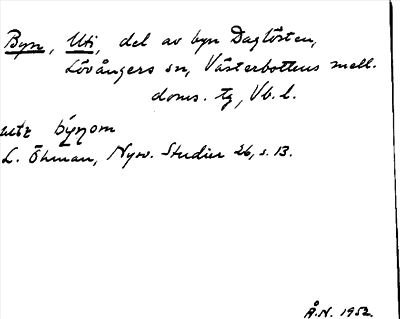 Byn, Uti, del av byn Daglösten,
Lövångers sn, Västerbottens mell.
doms. tg, Vb. l.
utĭ býŋom
L. Öhman, Nysv. Studier 26, s. 13.
Å.N. 1952.